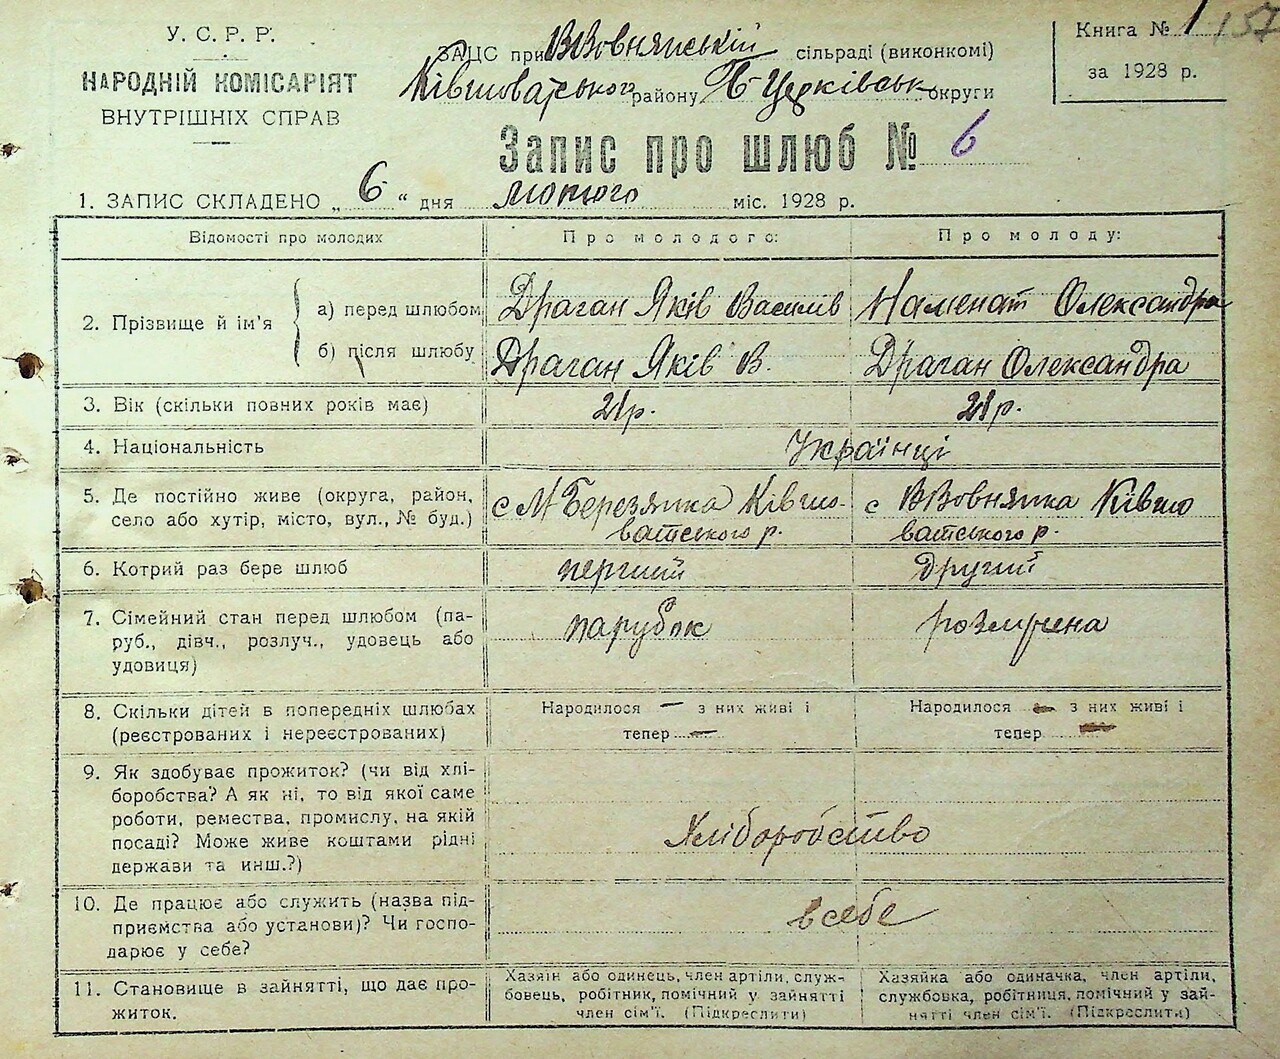 У. С. Р. Р.
НАРОДНІЙ КОМІСАРІЯТ
ВНУТРІШНІХ СПРАВ
ЗАЦС при ВВовнянській сільраді (виконкомі)
Ківшоватського району Б-Церківськ округи
Книга № 1 157
за 1928 р.
Запис про шлюб № 6
1. ЗАПИС СКЛАДЕНО „ 6 “ дня лютого міс. 1928 р.
Відомості про молодих
Про молодого:
Про молоду:
2. Прізвище й ім'я
а) перед шлюбом
Драган Яків Василів
Наменат Олександра
б) після шлюбу
Драган Яків В.
Драган Олександра
3. Вік (скільки повних років має)
21р.
21 р.
4. Національність
Українці
5. Де постійно живе (округа, район,
село або хутір, місто, вул., № буд.)
с М Березянка Ківшо-
ватського р.
с ВВовнянка Ківшо
ватського р.
6. Котрий раз бере шлюб
перший
другий
7. Сімейний стан перед шлюбом (па-
руб., дівч., розлуч., удовець або
удовиця)
парубок
8. Скільки дітей в попередніх шлюбах
(реєстрованих і нереєстрованих)
Народилося — з них живі і
тепер —
Народилося — з них живі і
тепер —
9. Як здобуває прожиток? (чи від хлі-
боробства? А як ні, то від якої саме
роботи, ремества, промислу, на якій
посаді? Може живе коштами рідні
держави та инш.?)
Хліборобство
10. Де працює або служить (назва під-
приємства або установи)? Чи госпо-
дарює у себе?
в себе
11. Становище в зайнятті, що дає про-
житок.
Хазяїн або одинець, член артіли, служ-
бовець, робітник, помічний у зайнятті
член сім'ї. (Підкреслити)
Хазяйка або одиначка, член артіли,
службовка, робітниця, помічний у зай-
нятті член сім'ї. (Підкреслити)